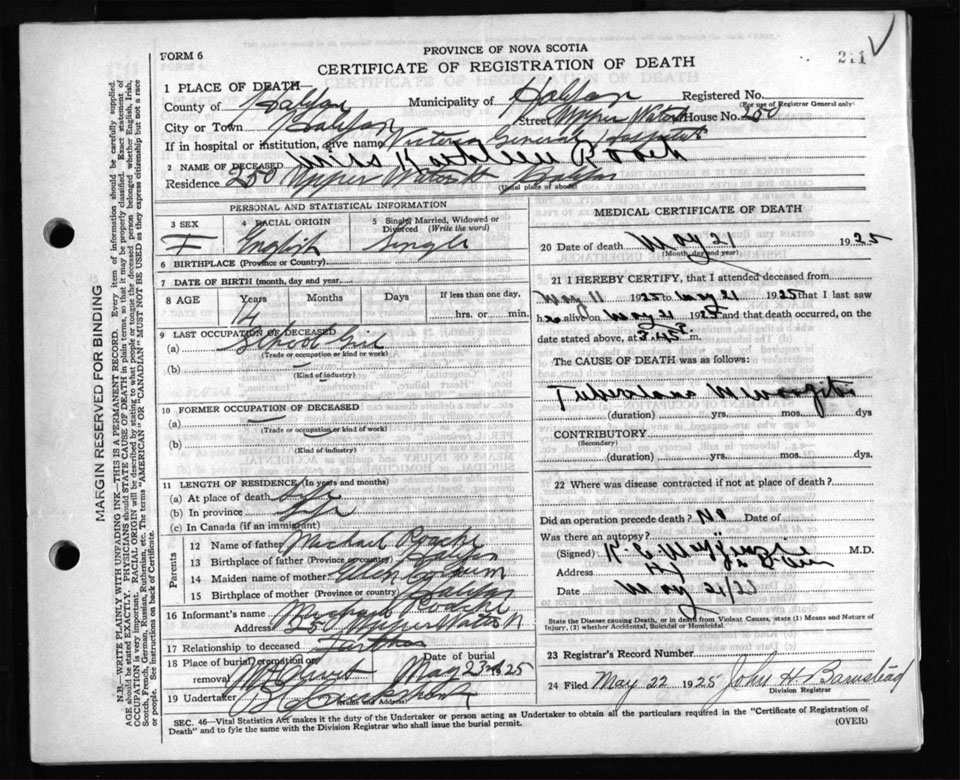 FORM 6
PROVINCE OF NOVA SCOTIA
CERTIFICATE OF REGISTRATION OF DEATH
211
1 PLACE OF DEATH—
County of Halifax Municipality of Halifax Registered No.
(For use of Registrar General only)
City or Town Halifax Street Upper Water House No. 250
If in hospital or institution, give name Victoria General Hospital
2 NAME OF DECEASED Miss Kathleen
Residence 250 Upper Water St Halifax
(Usual place of abode)
PERSONAL AND STATISTICAL INFORMATION
3 SEX
F
4 RACIAL ORIGIN
English
5 Single, Married, Widowed or Divorced (Write the word)
Single
6 BIRTHPLACE (Province or Country)
7 DATE OF BIRTH (month, day and year)
8 AGE Years Months Days If less than one day,
14 hrs. or min.
9 LAST OCCUPATION OF DECEASED
(a) School Girl
(Trade or occupation or kind or work)
(b)
(Kind of industry)
10 FORMER OCCUPATION OF DECEASED
(a)
(Trade or occupation or kind of work)
(b)
(Kind of industry)
11 LENGTH OF RESIDENCE (In years and months)
(a) At place of death Life
(b) In province Life
(c) In Canada (if an immigrant)
Parents
12 Name of father Michael Roache
13 Birthplace of father (Province or country) Halifax
14 Maiden name of mother
15 Birthplace of mother (Province or country) Halifax
16 Informant's name Michael Roache
Address 250 Upper Water St
17 Relationship to deceased Father
18 Place of burial, cremation or removal Mt Olivet
Date of burial May 23rd 1925
19 Undertaker
(Name and Address)
MEDICAL CERTIFICATE OF DEATH
20 Date of death May 21 1925
(Month, day and year)
21 I HEREBY CERTIFY, that I attended deceased from
May 11 1925 to May 21 1925 that I last saw
h er alive on May 21 1925 and that death occurred, on the
date stated above, at m.
The CAUSE OF DEATH was as follows:
Tuberculous Meningitis
(duration) yrs. mos. dys
CONTRIBUTORY
(Secondary)
(duration) yrs. mos. dys.
22 Where was disease contracted if not at place of death?
Did an operation precede death? No Date of
Was there an autopsy?
(Signed) M.D.
Address
Date May
State the Disease causing Death, or in death from Violent Causes, state (1) Means and Nature of
Injury, (2) whether Accidental, Suicidal or Homicidal.
23 Registrar's Record Number
24 Filed May 22 1925 John H Barnstead
Division Registrar
SEC. 46—Vital Statistics Act makes it the duty of the Undertaker or person acting as Undertaker to obtain all the particulars required in the "Certificate of Registration of
Death" and to fyle the same with the Division Registrar who shall issue the burial permit.
(OVER)
MARGIN RESERVED FOR BINDING
N.B.—WRITE PLAINLY WITH UNFADING INK—THIS IS A PERMANENT RECORD. Every item of information should be carefully supplied.
AGE should be stated EXACTLY. PHYSICIANS should STATE CAUSE OF DEATH in plain terms, so that it may be properly classified. Exact statement of
OCCUPATION is very important. RACIAL ORIGIN will be described by stating to what people or tongue the deceased person belonged whether English, Irish,
Scotch, French, German, Russian, Ruthenian, etc. The terms "AMERICAN" OR "CANADIAN" MUST NOT BE USED as they express citizenship but not a race
or people. See instructions on back of Certificate.